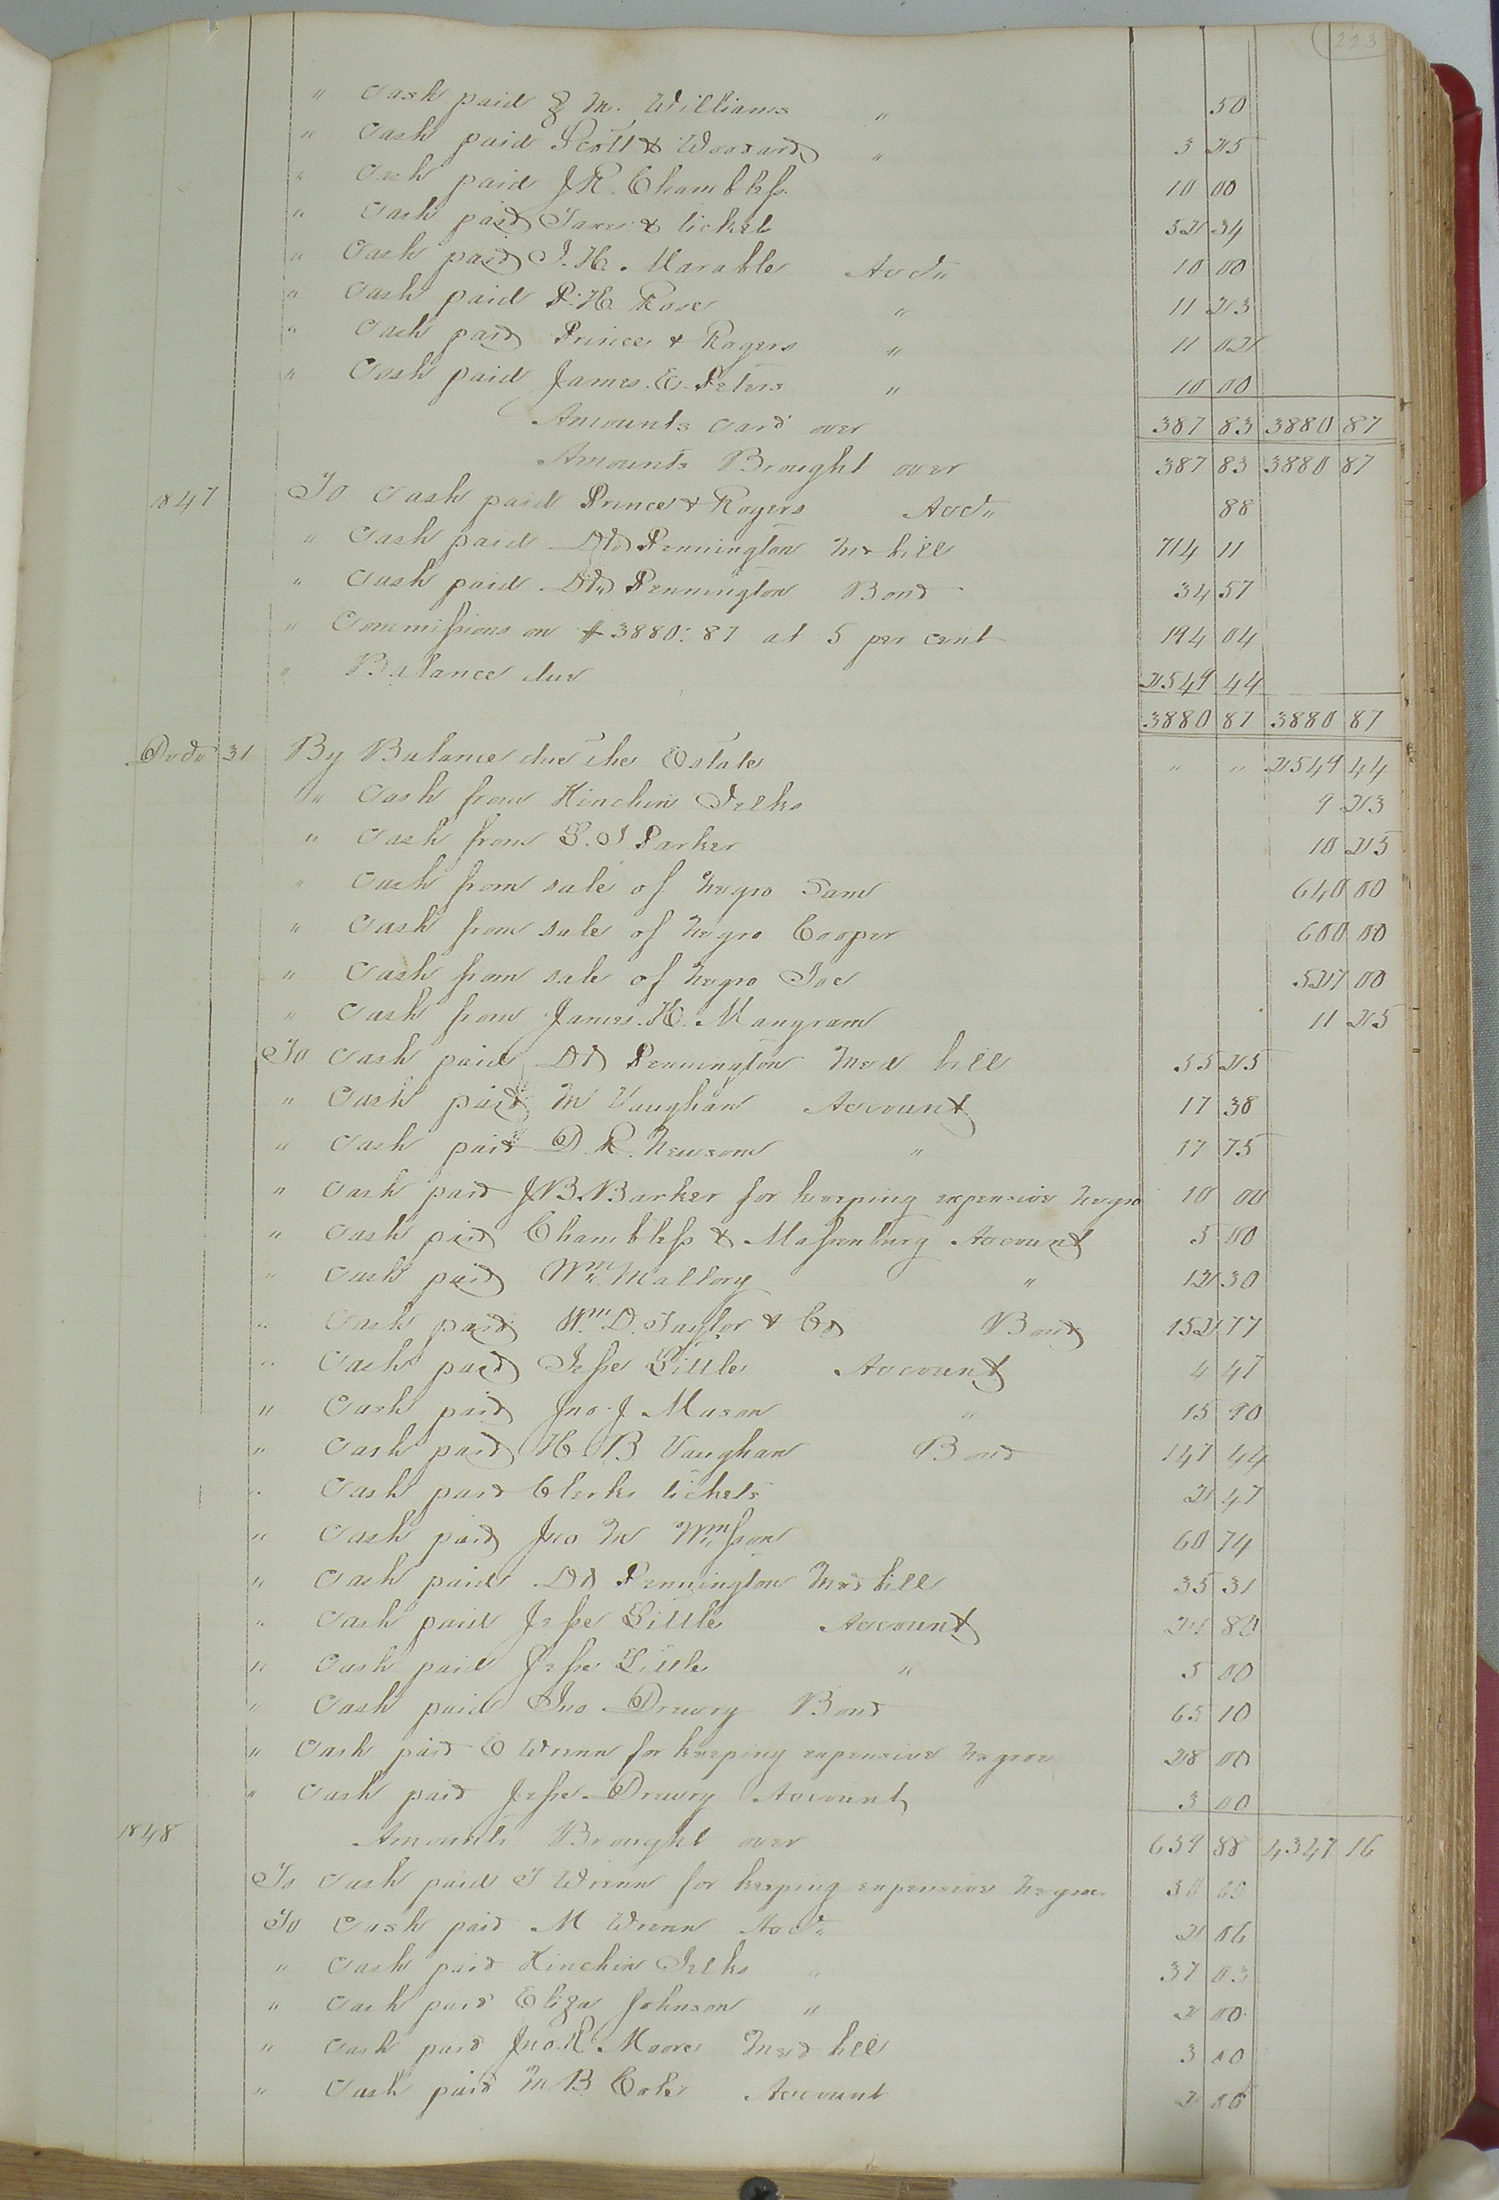 223
" Cash paid & M. Williams " 50
" Cash paid Scott & Woodard " 3 25
" Cash paid J R. Chambless 10 00
" Cash paid Taxes & ticket 52 34
" Cash paid J. H. Marable Acct. 10 00
" Cash paid P. H. Rose " 11 23
" Cash paid Prince & Rogers " 11 02
" Cash paid James. E. Peters " 10 00
Amounts card over 387 83 3880 87
Amounts Brought over 387 83 3880 87
1847 To Cash paid Prince & Rogers Acct. 88
" Cash paid Dr Pennington Md bill 714 11
" Cash paid Dr Pennington Bond 34 57
" Commissions on $3880: 87 at 5 per cent 194 04
" Balance due 2549 44
3880 87 3880 87
Decr 31 By Balance due the Estate " " 2549 44
" Cash from Hinchin Jelks 9 23
" Cash from S. J Parker 10 25
" Cash from sale of negro Sam 640 00
" Cash from sale of negro Cooper 600 00
" Cash from sale of negro Joe 527 00
" Cash from James. H. Mangram 11 25
To Cash paid Dr Pennington Med bill 55 25
" Cash paid M Vaughan Account 17 38
" Cash paid D. R. Newsom " 17 75
" Cash paid J. B. Barker for keeping expensive negro 10 00
" Cash paid Chambless & Massenburg Account 5 00
" Cash paid Wm Mallory " 12 30
" Cash paid Wm D. Taylor & Co Bond 152 77
" Cash paid Jesse Little Account 4 47
" Cash paid Jno. J. Mason " 15 90
" Cash paid H B Vaughan Bond 147 44
" Cash paid Clerks tickets 2 47
" Cash paid Jno M Wmson 60 74
" Cash paid Dr Pennington Med bill 35 31
" Cash paid Jesse Little Account 21 80
" Cash paid Jesse Little " 5 00
" Cash paid Jno Drewry Bond 65 10
" Cash paid E Wrenn for keeping expensive negroe 28 00
" Cash paid Jesse Drewry Account 3 00
1848 Amounts Brought over 659 88 4347 16
To Cash paid T Wrenn for keeping expensive negroe 30 00
To Cash paid M Wrenn Acct. 2 06
" Cash paid Hinchin Jelks " 37 03
" Cash paid Eliza Johnson " 2 00
" Cash paid Jno. R. Moore Med bill 3 00
" Cash paid M B Cole Account 2 00